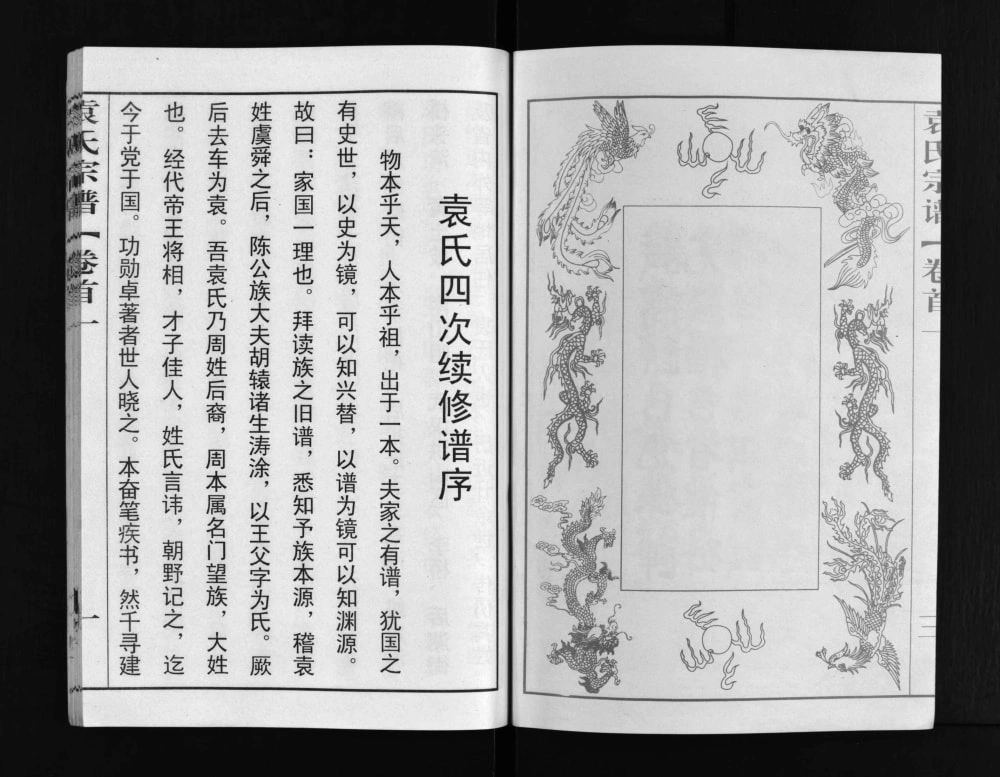 袁氏宗谱【卷首】
三
袁氏四次续修谱序
物本乎天，人本乎祖，出于一本。夫家之有谱，犹国之
有史世，以史为镜，可以知兴替，以谱为镜可以知渊源。
故曰：家国一理也。拜读族之旧谱，悉知予族本源，稽袁
姓虞舜之后，陈公族大夫胡辕诸生涛涂，以王父字为氏。厥
后去车为袁。吾袁氏乃周姓后裔，周本属名门望族，大姓
也。经代帝王将相，才子佳人，姓氏言讳，朝野记之，迄
今于党于国。功勋卓著者世人晓之。本奋笔疾书，然千寻建
袁氏宗谱【卷首】
一